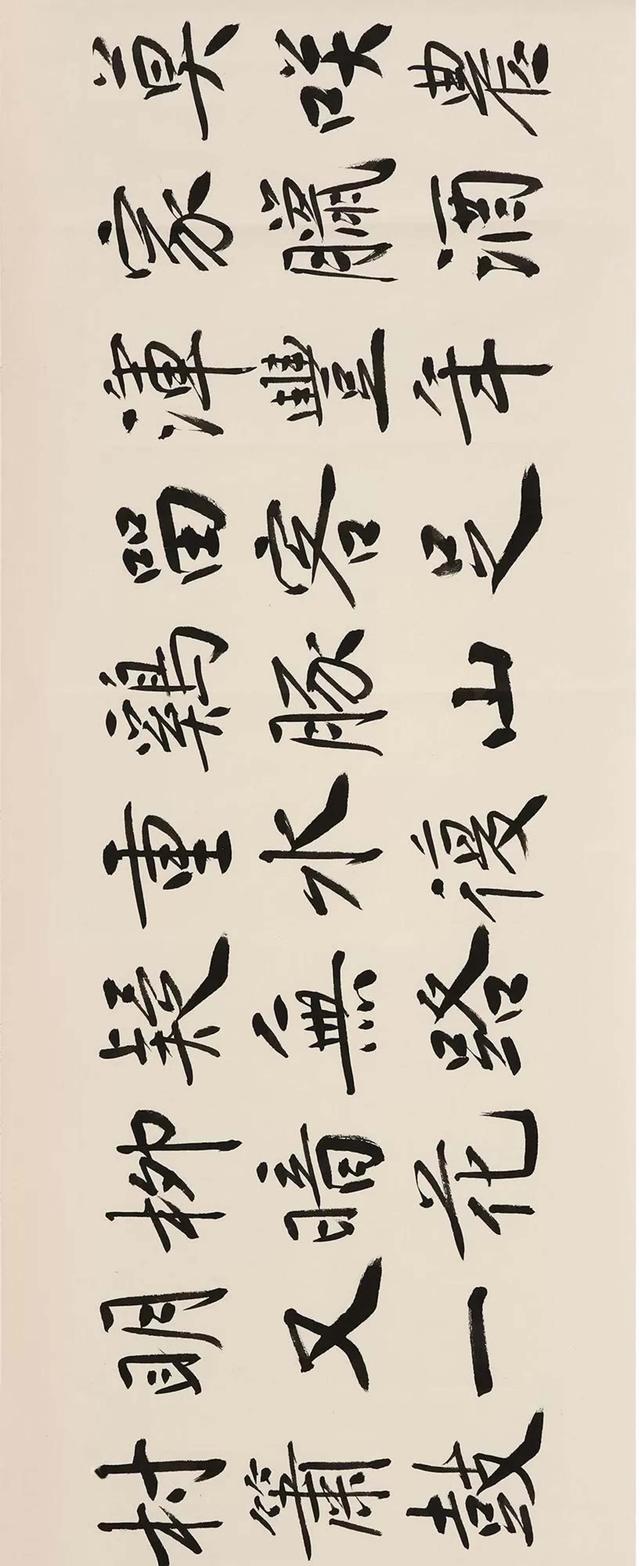 莫咲農
家臘酒
渾豐年
留客足
鷄豚山
重水復
疑無路
柳暗花
明又一
村簫鼓